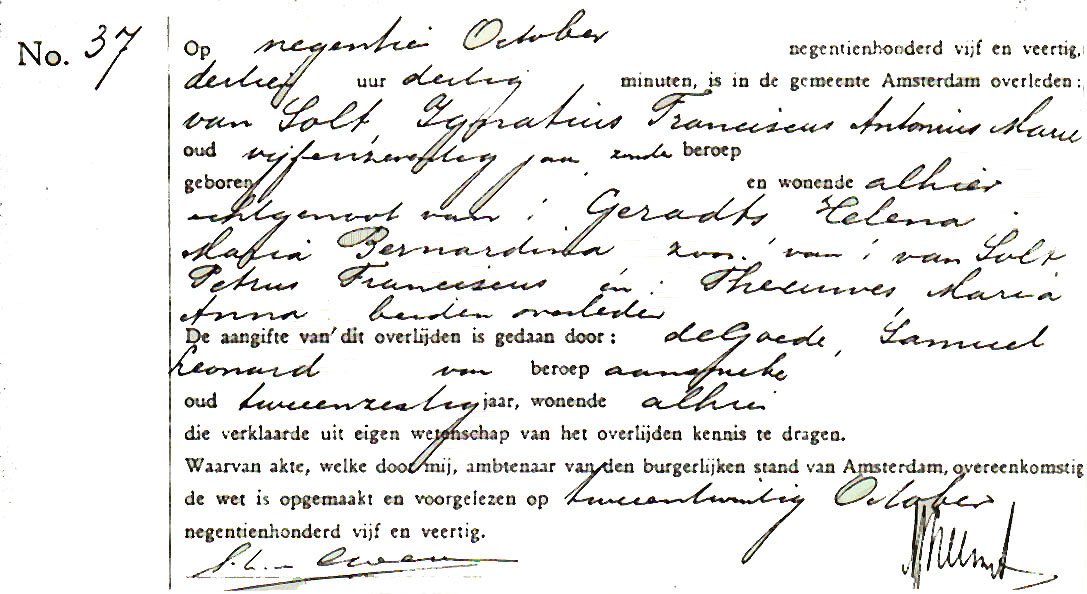 No. 37
Op negentien October negentienhonderd vijf en veertig,
dertien uur dertig minuten, is in de gemeente Amsterdam overleden:
van Solt, Ignatius Franciscus Antonius Marie
oud vijfenzeventig jaar, zonder beroep
geboren en wonende alhier
echtgenoot van: Geradts Helena
Maria Bernardina zoon van: van Solt
Petrus Franciscus en: Theeuwes Maria
Anna beiden overleden
De aangifte van dit overlijden is gedaan door: de Goede, Samuel
Leonard van beroep aanspreker
oud tweeenzestig jaar, wonende alhier
die verklaarde uit eigen wetenschap van het overlijden kennis te dragen.
Waarvan akte, welke door mij, ambtenaar van den burgerlijken stand van Amsterdam, overeenkomstig
de wet is opgemaakt en voorgelezen op tweeentwintig October
negentienhonderd vijf en veertig.